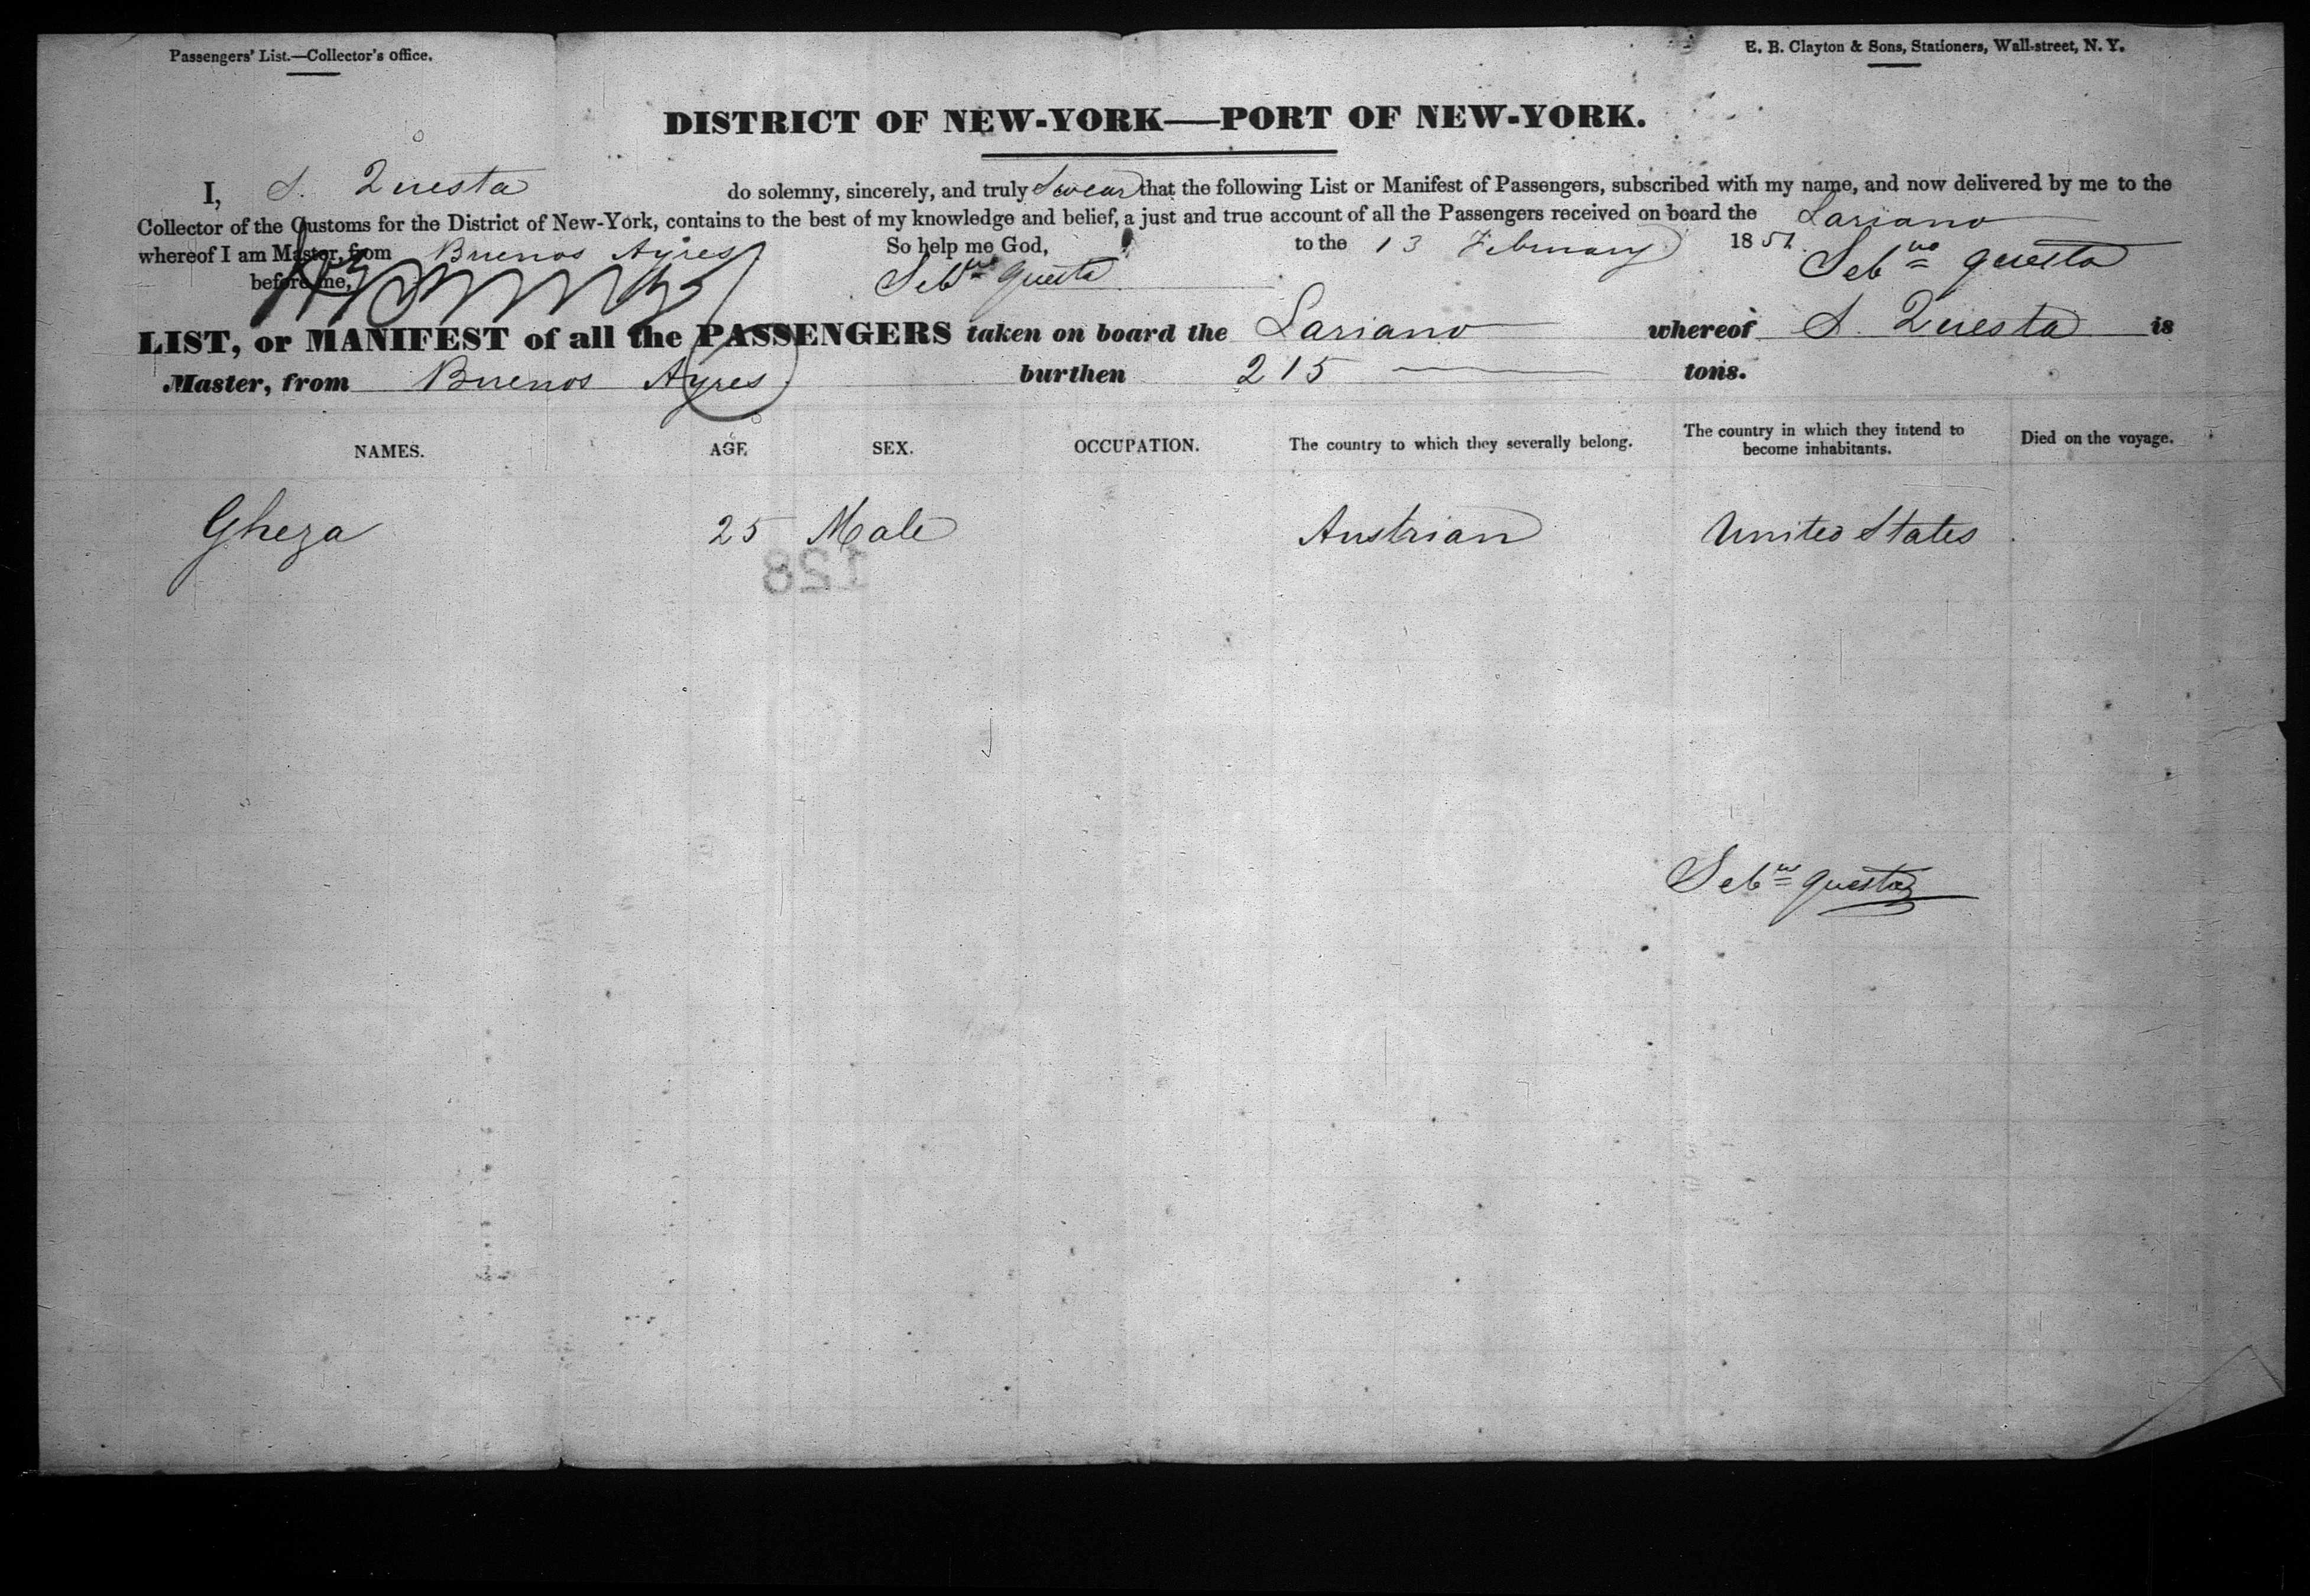 Passengers' List.—Collector's office.
E. B. Clayton & Sons, Stationers, Wall-street, N. Y.
DISTRICT OF NEW-YORK—PORT OF NEW-YORK.
I, S. Questa do solemny, sincerely, and truly Swear that the following List or Manifest of Passengers, subscribed with my name, and now delivered by me to the
Collector of the Customs for the District of New-York, contains to the best of my knowledge and belief, a just and true account of all the Passengers received on board the Lariano
whereof I am Master, from Buenos Ayres So help me God, to the 13 February 185 Sebno questa
before me, Sebno questa
LIST, or MANIFEST of all the PASSENGERS taken on board the Lariano whereof S. Questa is
Master, from Buenos Ayres burthen 215 tons.
NAMES. AGE SEX. OCCUPATION. The country to which they severally belong. The country in which they intend to become inhabitants. Died on the voyage.
Gheza 25 Male Austrian United States
128
Sebno questa